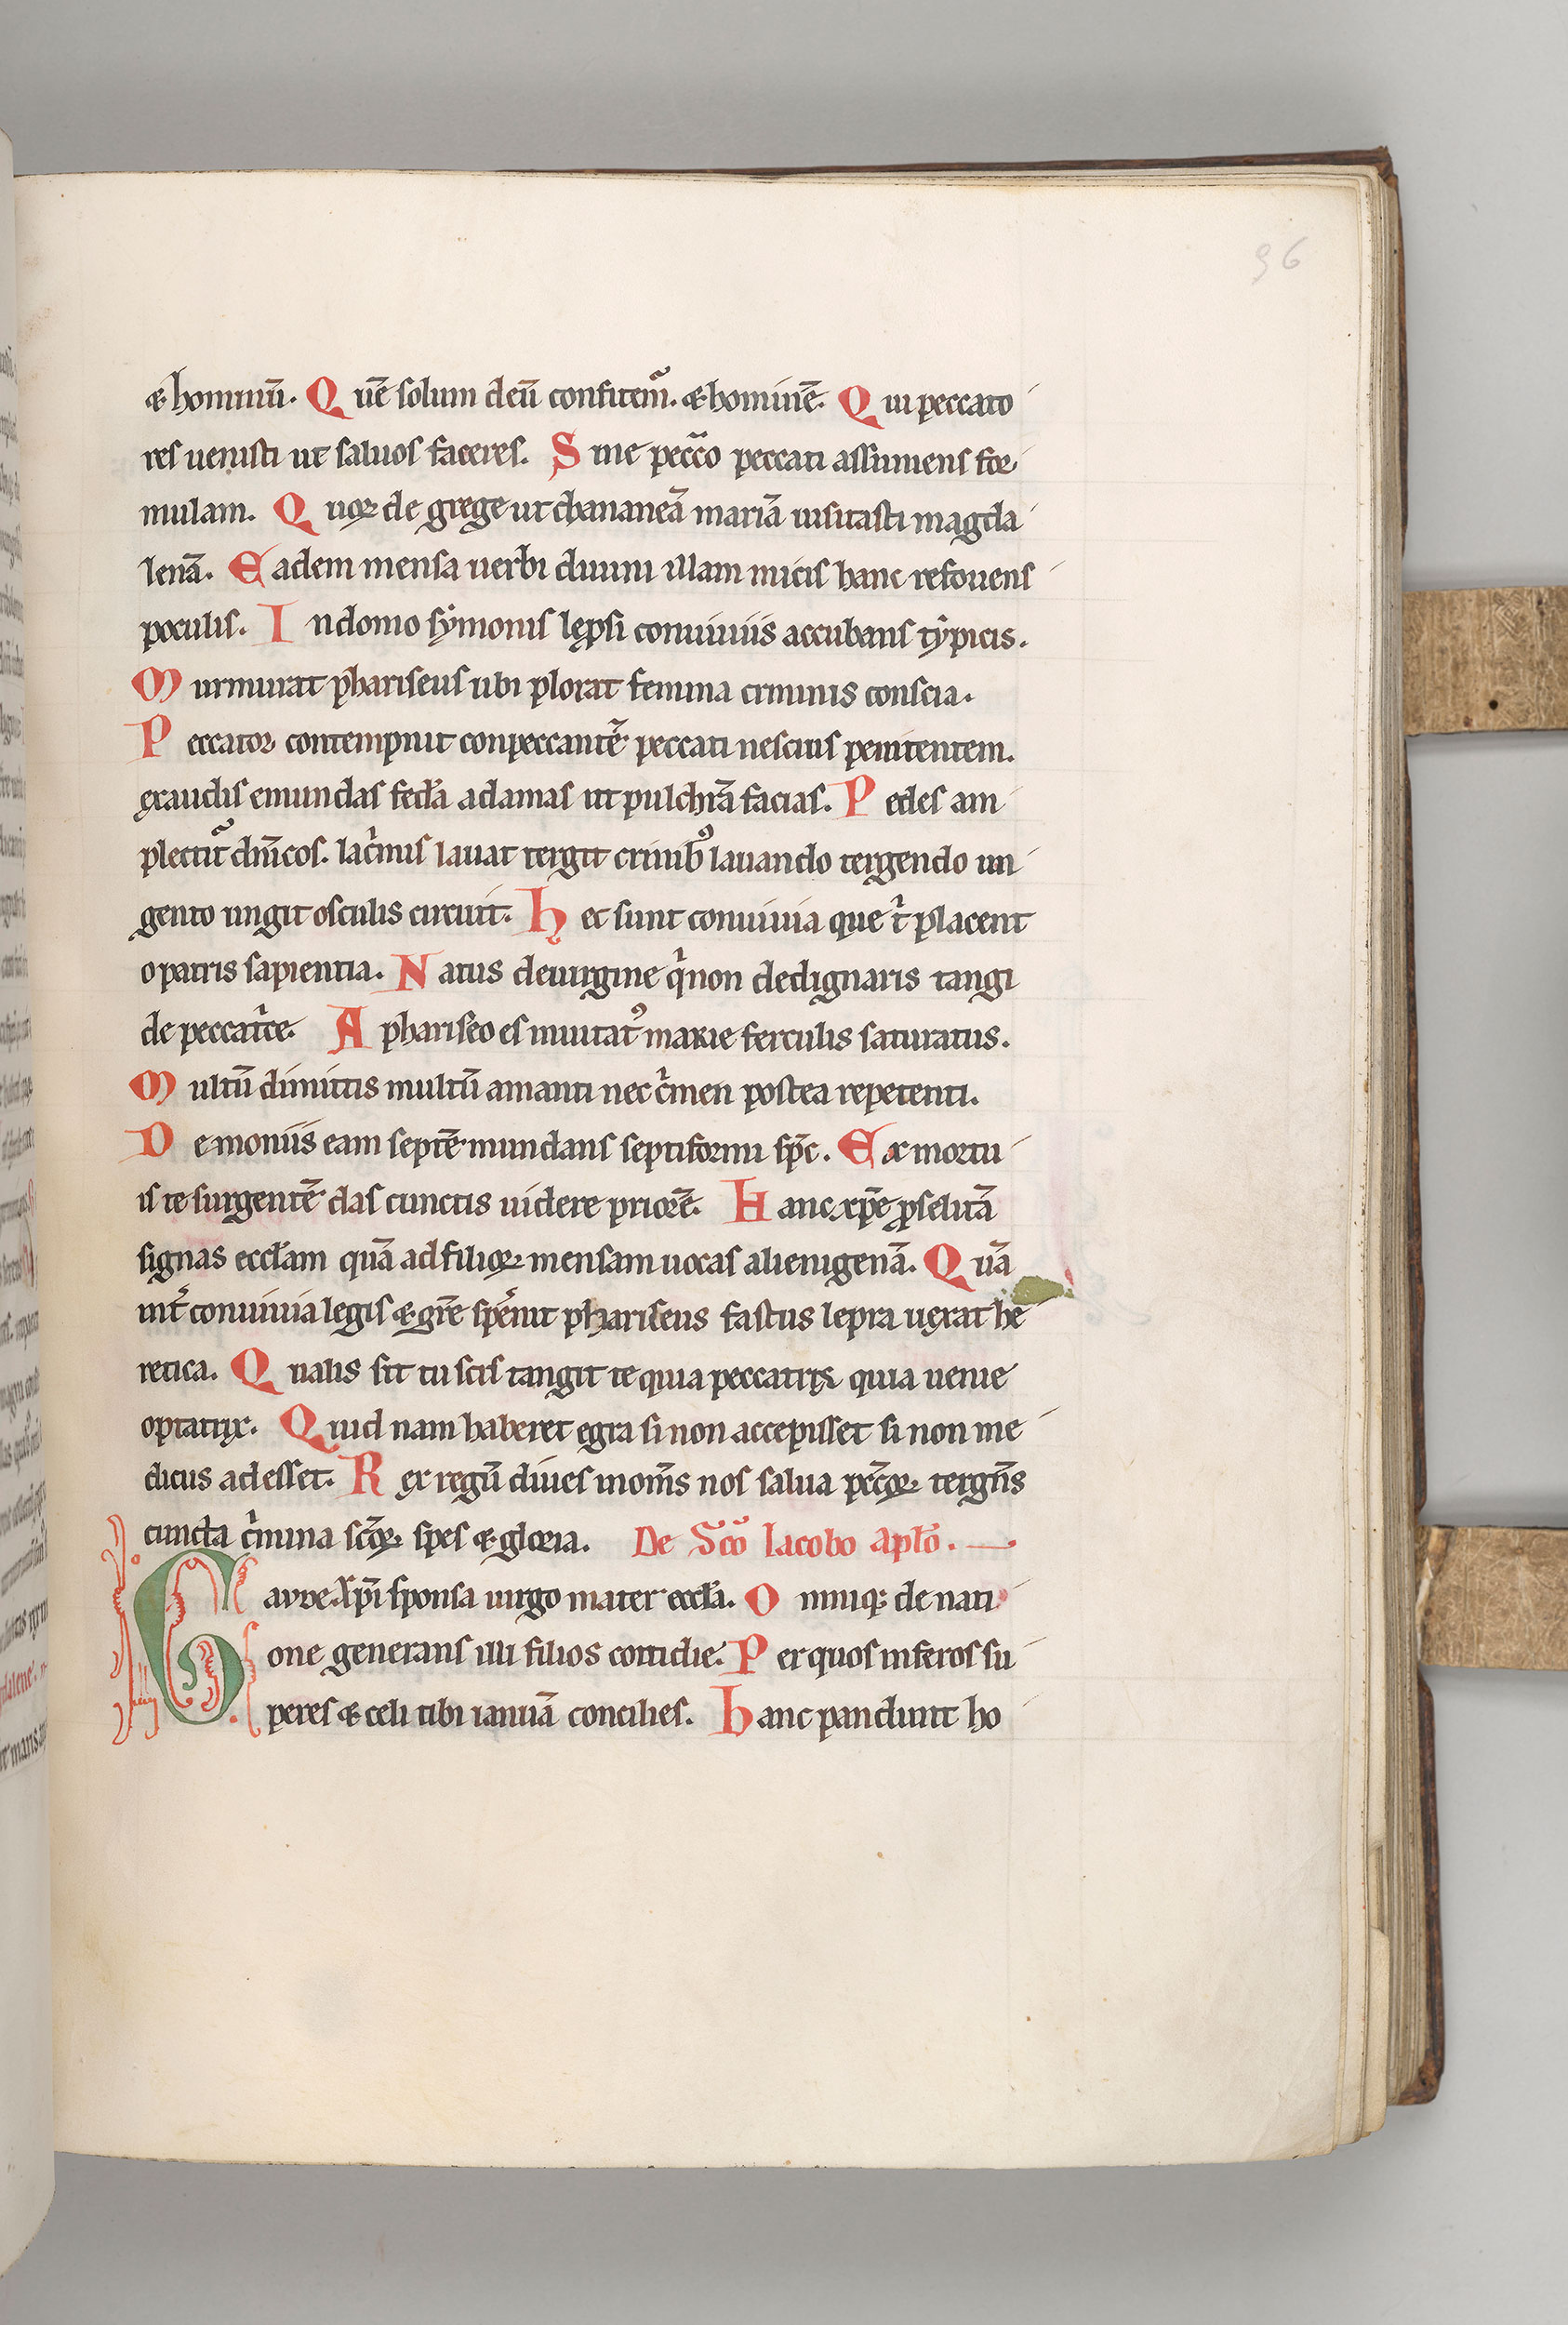 96
& hominū. Quē solum deū confitem̄. & hominē. Qui peccato
res uenisti ut saluos faceres. Sine pecc̄o peccati assumens for
mulam. Quoꝝ de grege ut chananeā mariā uisitasti magda
lenā. Eadem mensa uerbi diuini illam micis hanc refouens
poculis. In domo symonis lęp̱si conuiuiis accubans typicis.
Murmurat phariseus ubi plorat femina criminis conscia.
Peccator contempnit conpeccantē peccati nescius penitentem.
exaudis emundas fedā adamas ut pulchrā facias. Pedes am
plectit᷑ dn̄icos. lac̉mis lauat tergit crinib᷒ lauando tergendo un
gento ungit osculis circuit. Hec sunt conuiuia que t̉ placent
o patris sapientia. Natus de uirgine q̉ non dedignaris tangi
de peccat̉ce. A phariseo es inuitat᷒ marie ferculis saturatus.
Multū dimittis multū amanti nec c̉men postea repetenti.
Demoniis eam septē mundans septiformi sp̄c. Ex mortu
is te surgentē das cunctis uidere priorē. Hanc xp̄e ꝓselitā
signas ecclāam quā ad filioꝝ mensam uocas alienigenā. Quā
int̉ conuiuia legis & gr̄e sp̄nit phariseus fastus lepra uexat he
retica. Qualis sit tu scis tangit te quia peccatrix quia uenie
optatrix. Quid nam haberet egra si non accepisset si non me
dicus adesset. Rex regū diues in om̄s nos salua pecc̄oꝝ tergn̄s
cuncta c̉mina sc̄oꝝ spes & gloria. De Sc̄o Iacobo Apl̄o.
Gaude Xp̄i sponsa uirgo mater eccl̄a. Omniq; de nati
one generans illi filios cottidie. Per quos inferos su
peres & celi tibi ianuā concilies. Hanc pandunt ho